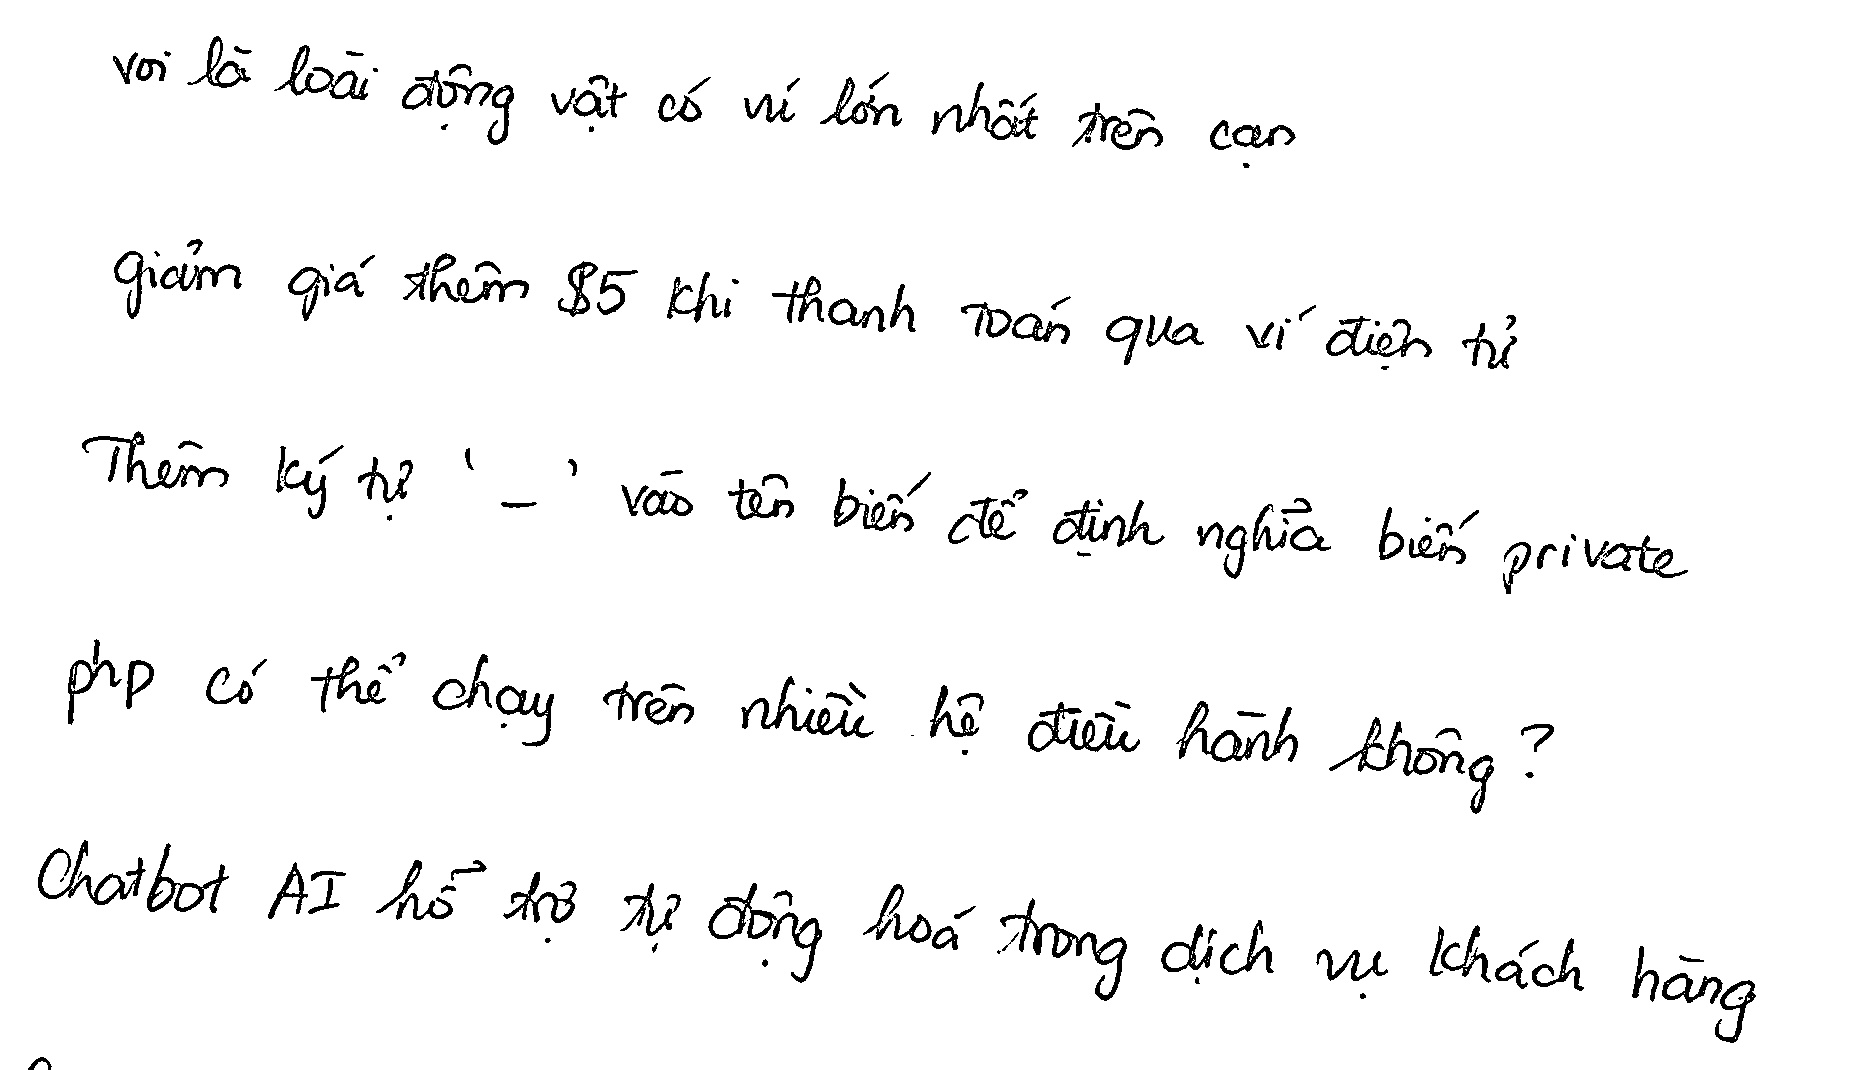 voi là loài động vật có vú lớn nhất trên cạn
giảm giá thêm $5 khi thanh toán qua ví điện tử
Thêm ký tự '_' vào tên biến để định nghĩa biến private
php có thể chạy trên nhiều hệ điều hành không?
Chatbot AI hỗ trợ tự động hoá trong dịch vụ khách hàng